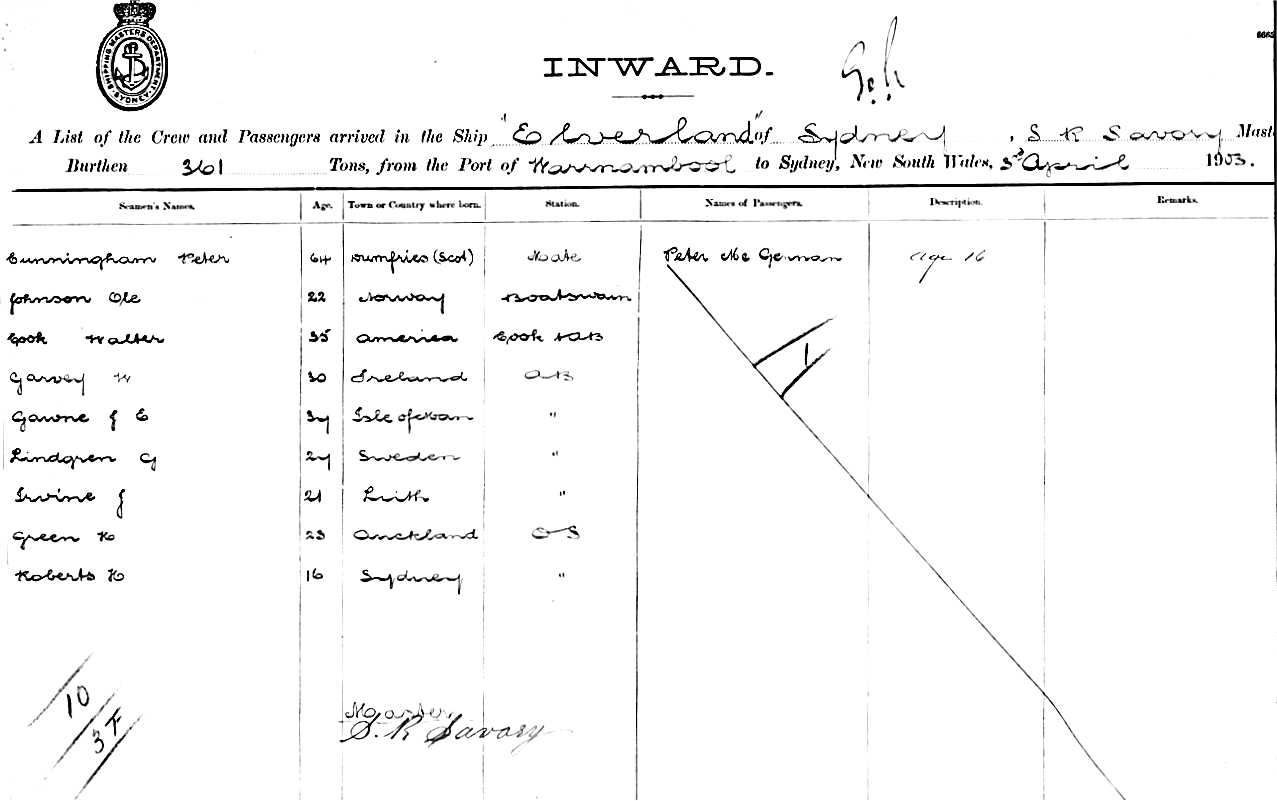 SHIPPING MASTERS DEPARTMENT. SYDNEY.
INWARD.
A List of the Crew and Passengers arrived in the Ship "Elverland" of Sydney, S R Savory Mast
Burthen 361 Tons, from the Port of Warrnambool to Sydney, New South Wales, 3rd April 1903.
Seamen's Names. Age. Town or Country where born. Station. Names of Passengers. Description. Remarks.
Cunningham Peter 64 Dumfries (Scot) Mate Peter Mc Gernan age 16
Johnson Ole 22 Norway Boatswain
Cook Walter 35 America Cook & AB
Garvey W 30 Ireland AB
Gawne J E 34 Isle of Man "
Lindgren G 24 Sweden "
Irvine J 21 Leith "
Green H 23 Auckland OS
Roberts H 16 Sydney "
1
10
3 F
Master
S. R Savory